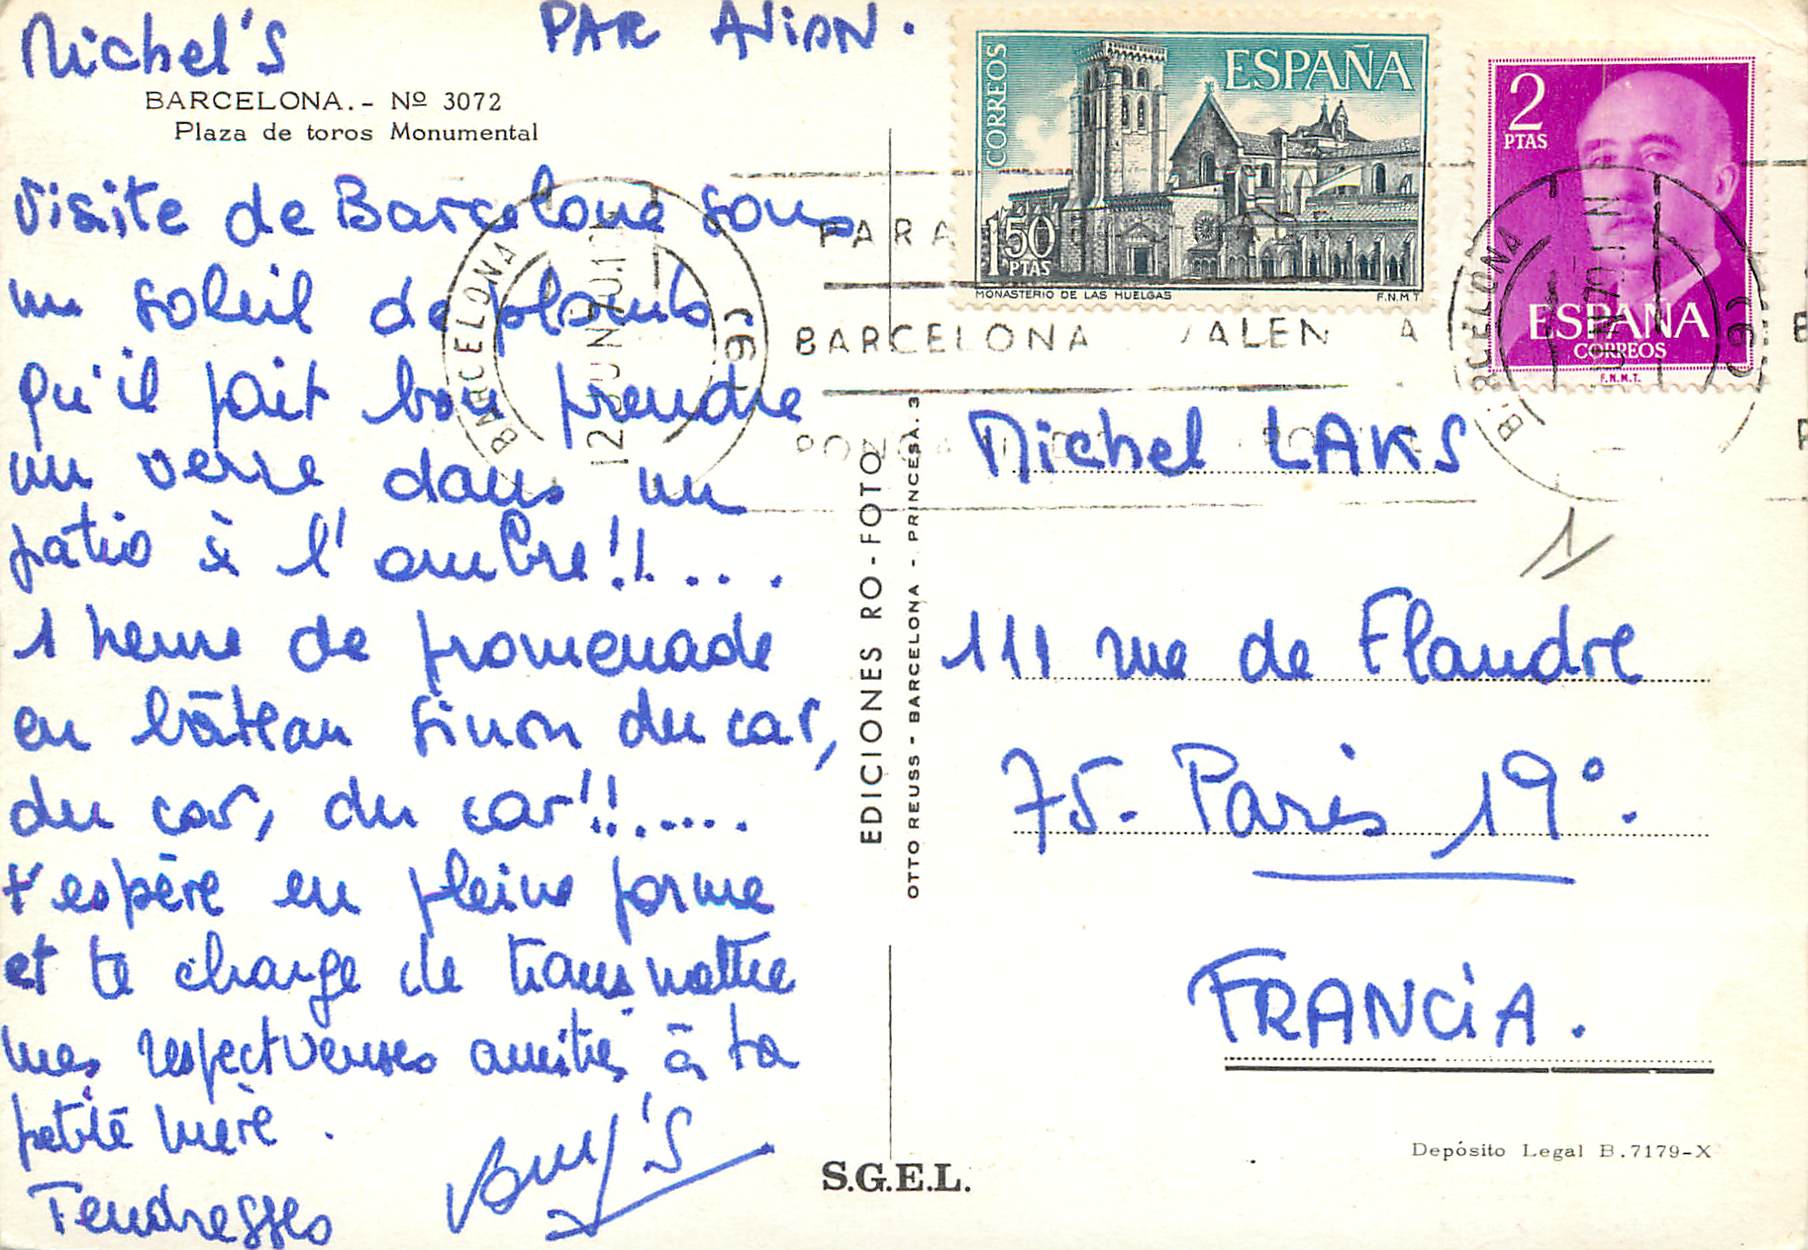 Michel's
PAR AVION.
BARCELONA.- Nº 3072
Plaza de toros Monumental
Visite de Barcelone sous
un soleil de plomb.
qu'il fait bon prendre
un verre dans un
patio à l'ombre!!....
1 heure de promenade
en bâteau sinon du car,
du car, du car!!.....
t'espère en pleine forme
et te charge de transmettre
mes respectueuses amitiés à ta
petite mère.
Tendresses
EDICIONES RO-FOTO
OTTO REUSS - BARCELONA - PRINCESA. 3
S.G.E.L.
CORREOS
ESPAÑA
1'50
PTAS
MONASTERIO DE LAS HUELGAS
F.N.M.T
2
PTAS
ESPAÑA
CORREOS
F.N.M.T.
BARCELONA
12 JUN 70
BARCELONA
Michel LAKS
111 rue de Flandre
75. Paris 19°.
FRANCiA.
Depósito Legal B.7179-X